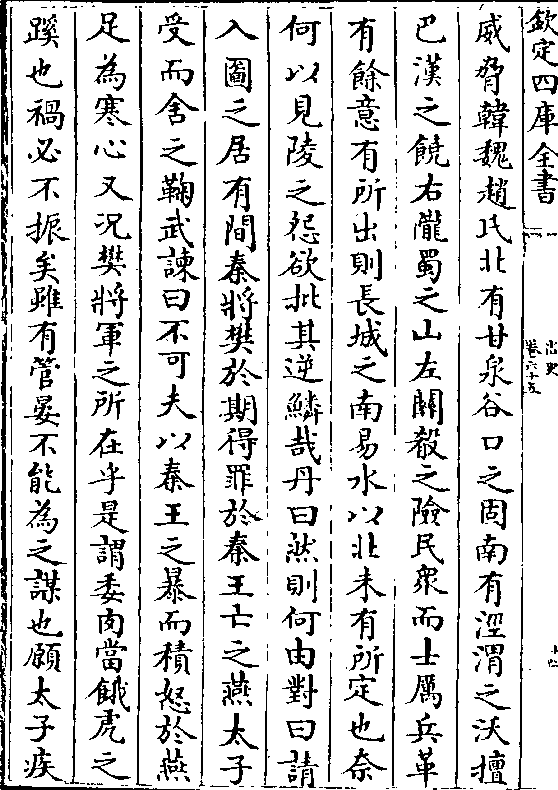 欽定四庫全書
卷六十五
威脅韓魏趙氏北有甘泉谷口之固南有涇渭之沃擅
巴漢之饒右隴蜀之山左關殽之險民衆而士厲兵革
有餘意有所出則長城之南易水以北未有所定也奈
何以見陵之怨欲批其逆鱗哉丹曰然則何由對曰請
入圖之居有間秦將樊於期得罪於秦王亡之燕太子
受而舍之鞠武諫曰不可夫以秦王之暴而積怒於燕
足為寒心又况樊將軍之所在乎是謂委肉當餓虎之
蹊也禍必不振矣雖有管晏不能為之謀也願太子疾